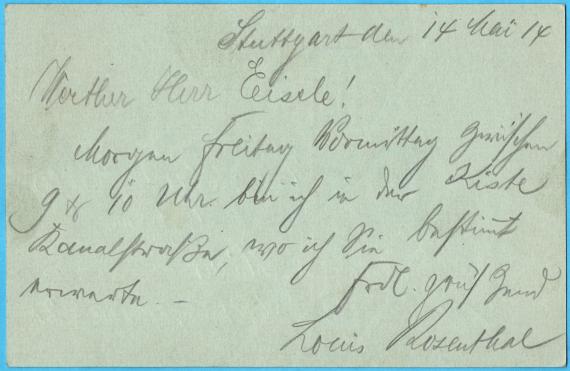 Stuttgart den 14 Mai 14
Werther Herr Eisele!
Morgen Freitag Vormittag zwischen
9 & 10 Uhr bin ich in der Kiste
Kanalstraße, wo ich Sie bestimmt
erwarte. –
Frdl. grüßend
Louis Rosenthal